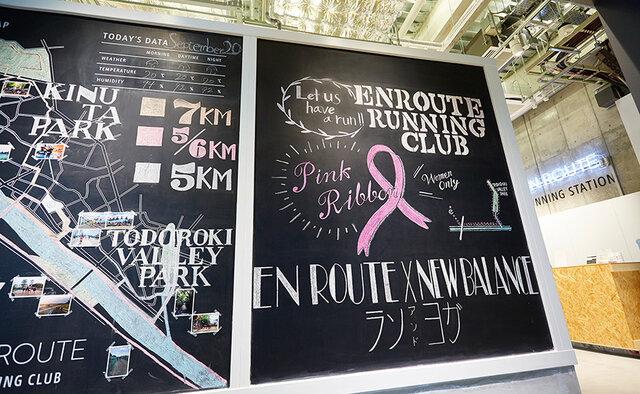 AP
TODAY'S DATA September 20
MORNING DAYTIME NIGHT
WEATHER
TEMPERATURE
HUMIDITY
KINU
TA
PARK
7KM
5/6KM
5KM
TODOROKI
VALLEY
PARK
N ROUTE
NING CLUB
Let us
have
a run!!
ENROUTE
RUNNING
CLUB
Pink
Ribbon
Women
Only
TODOROKI
VALLEY
PARK
EN ROUTE X NEW BALANCE
ラン アンド ヨガ
N ROUTE
NNING STATION